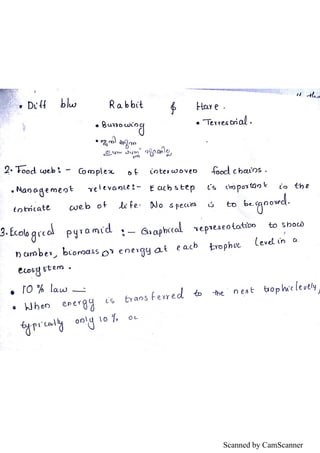 • Diff b/w Rabbit & Hare.
• Burrowing • Terrestrial.
2. Food web :- Complex of interwoven food chains.
• Management relevance :- Each step is important in the
intricate web of life. No species is to be ignored.
3. Ecological pyramid :- Graphical representation to show
number, biomass or energy at each trophic level in a
ecosystem.
• 10 % law —:
• When energy is transferred to the next trophic level,
typically only 10 %
Scanned by CamScanner